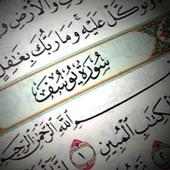 وَالْأَرْضِ
وَكَّلْ عَلَيْهِ وَمَا رَبُّكَ بِغَٰفِلٍ
سُورَةُ يُوسُفَ
بِسْمِ اللَّهِ الرَّحْمَٰنِ الرَّحِيمِ
الْكِتَٰبِ الْمُبِينِ ١